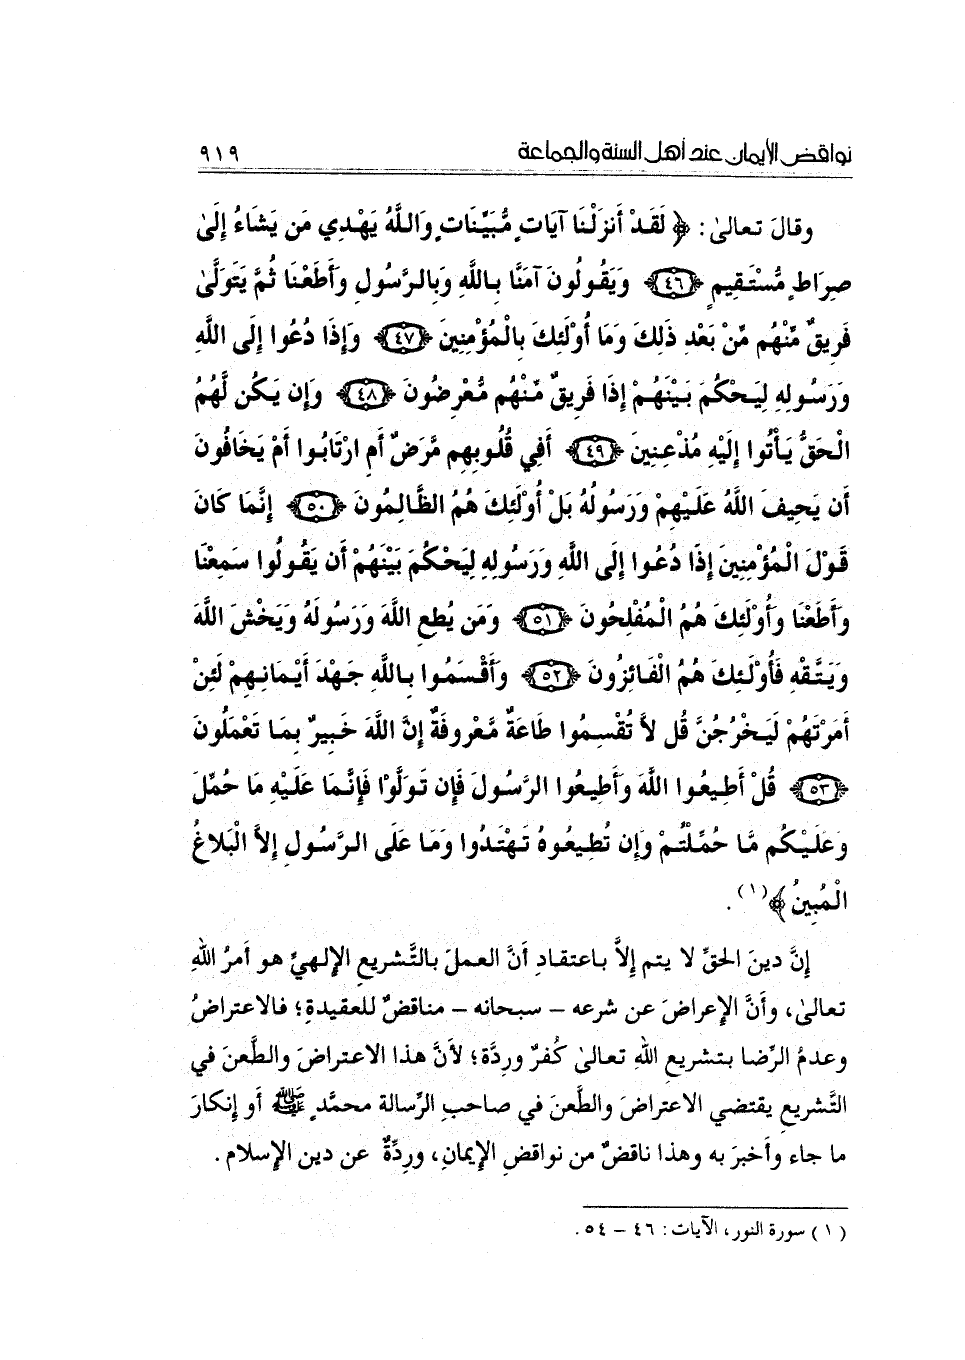 نواقض الإيمان عند أهل السنة والجماعة ٩١٩
وقالَ تعالىٰ: ﴿ لَقَدْ أَنزَلْنَا آيَاتٍ مُّبَيِّنَاتٍ وَاللَّهُ يَهْدِي مَن يَشَاءُ إِلَىٰ
صِرَاطٍ مُّسْتَقِيمٍ ﴿٤٦﴾ وَيَقُولُونَ آمَنَّا بِاللَّهِ وَبِالرَّسُولِ وَأَطَعْنَا ثُمَّ يَتَوَلَّىٰ
فَرِيقٌ مِّنْهُم مِّنْ بَعْدِ ذَلِكَ وَمَا أُوْلَئِكَ بِالْمُؤْمِنِينَ ﴿٤٧﴾ وَإِذَا دُعُوا إِلَى اللَّهِ
وَرَسُولِهِ لِيَحْكُمَ بَيْنَهُمْ إِذَا فَرِيقٌ مِّنْهُم مُّعْرِضُونَ ﴿٤٨﴾ وَإِن يَكُن لَّهُمُ
الْحَقُّ يَأْتُوا إِلَيْهِ مُذْعِنِينَ ﴿٤٩﴾ أَفِي قُلُوبِهِم مَّرَضٌ أَمِ ارْتَابُوا أَمْ يَخَافُونَ
أَن يَحِيفَ اللَّهُ عَلَيْهِمْ وَرَسُولُهُ بَلْ أُوْلَئِكَ هُمُ الظَّالِمُونَ ﴿٥٠﴾ إِنَّمَا كَانَ
قَوْلَ الْمُؤْمِنِينَ إِذَا دُعُوا إِلَى اللَّهِ وَرَسُولِهِ لِيَحْكُمَ بَيْنَهُمْ أَن يَقُولُوا سَمِعْنَا
وَأَطَعْنَا وَأُوْلَئِكَ هُمُ الْمُفْلِحُونَ ﴿٥١﴾ وَمَن يُطِعِ اللَّهَ وَرَسُولَهُ وَيَخْشَ اللَّهَ
وَيَتَّقْهِ فَأُوْلَئِكَ هُمُ الْفَائِزُونَ ﴿٥٢﴾ وَأَقْسَمُوا بِاللَّهِ جَهْدَ أَيْمَانِهِمْ لَئِنْ
أَمَرْتَهُمْ لَيَخْرُجُنَّ قُل لاَّ تُقْسِمُوا طَاعَةٌ مَّعْرُوفَةٌ إِنَّ اللَّهَ خَبِيرٌ بِمَا تَعْمَلُونَ
﴿٥٣﴾ قُلْ أَطِيعُوا اللَّهَ وَأَطِيعُوا الرَّسُولَ فَإِن تَوَلَّوْا فَإِنَّمَا عَلَيْهِ مَا حُمِّلَ
وَعَلَيْكُم مَّا حُمِّلْتُمْ وَإِن تُطِيعُوهُ تَهْتَدُوا وَمَا عَلَى الرَّسُولِ إِلاَّ الْبَلاغُ
الْمُبِينُ ﴾(١).
إنَّ دينَ الحقِّ لا يتم إلاَّ باعتقادِ أنَّ العملَ بالتَّشريع الإلهيِّ هو أمرُ اللهِ
تعالىٰ، وأنَّ الإعراضَ عن شرعه – سبحانه – مناقضٌ للعقيدةِ؛ فالاعتراضُ
وعدمُ الرِّضا بتشريعِ اللهِ تعالىٰ كُفرٌ ورِدَّة؛ لأنَّ هذا الاعتراضَ والطَّعنَ في
التَّشريعِ يقتضي الاعتراضَ والطَّعنَ في صاحبِ الرِّسالة محمَّدٍ ﷺ أو إنكارَ
ما جاء وأخبرَ به وهذا ناقضٌ من نواقضِ الإيمانِ، ورِدِّةٌ عن دين الإسلام.
(١) سورة النور، الآيات: ٤٦ – ٥٤.